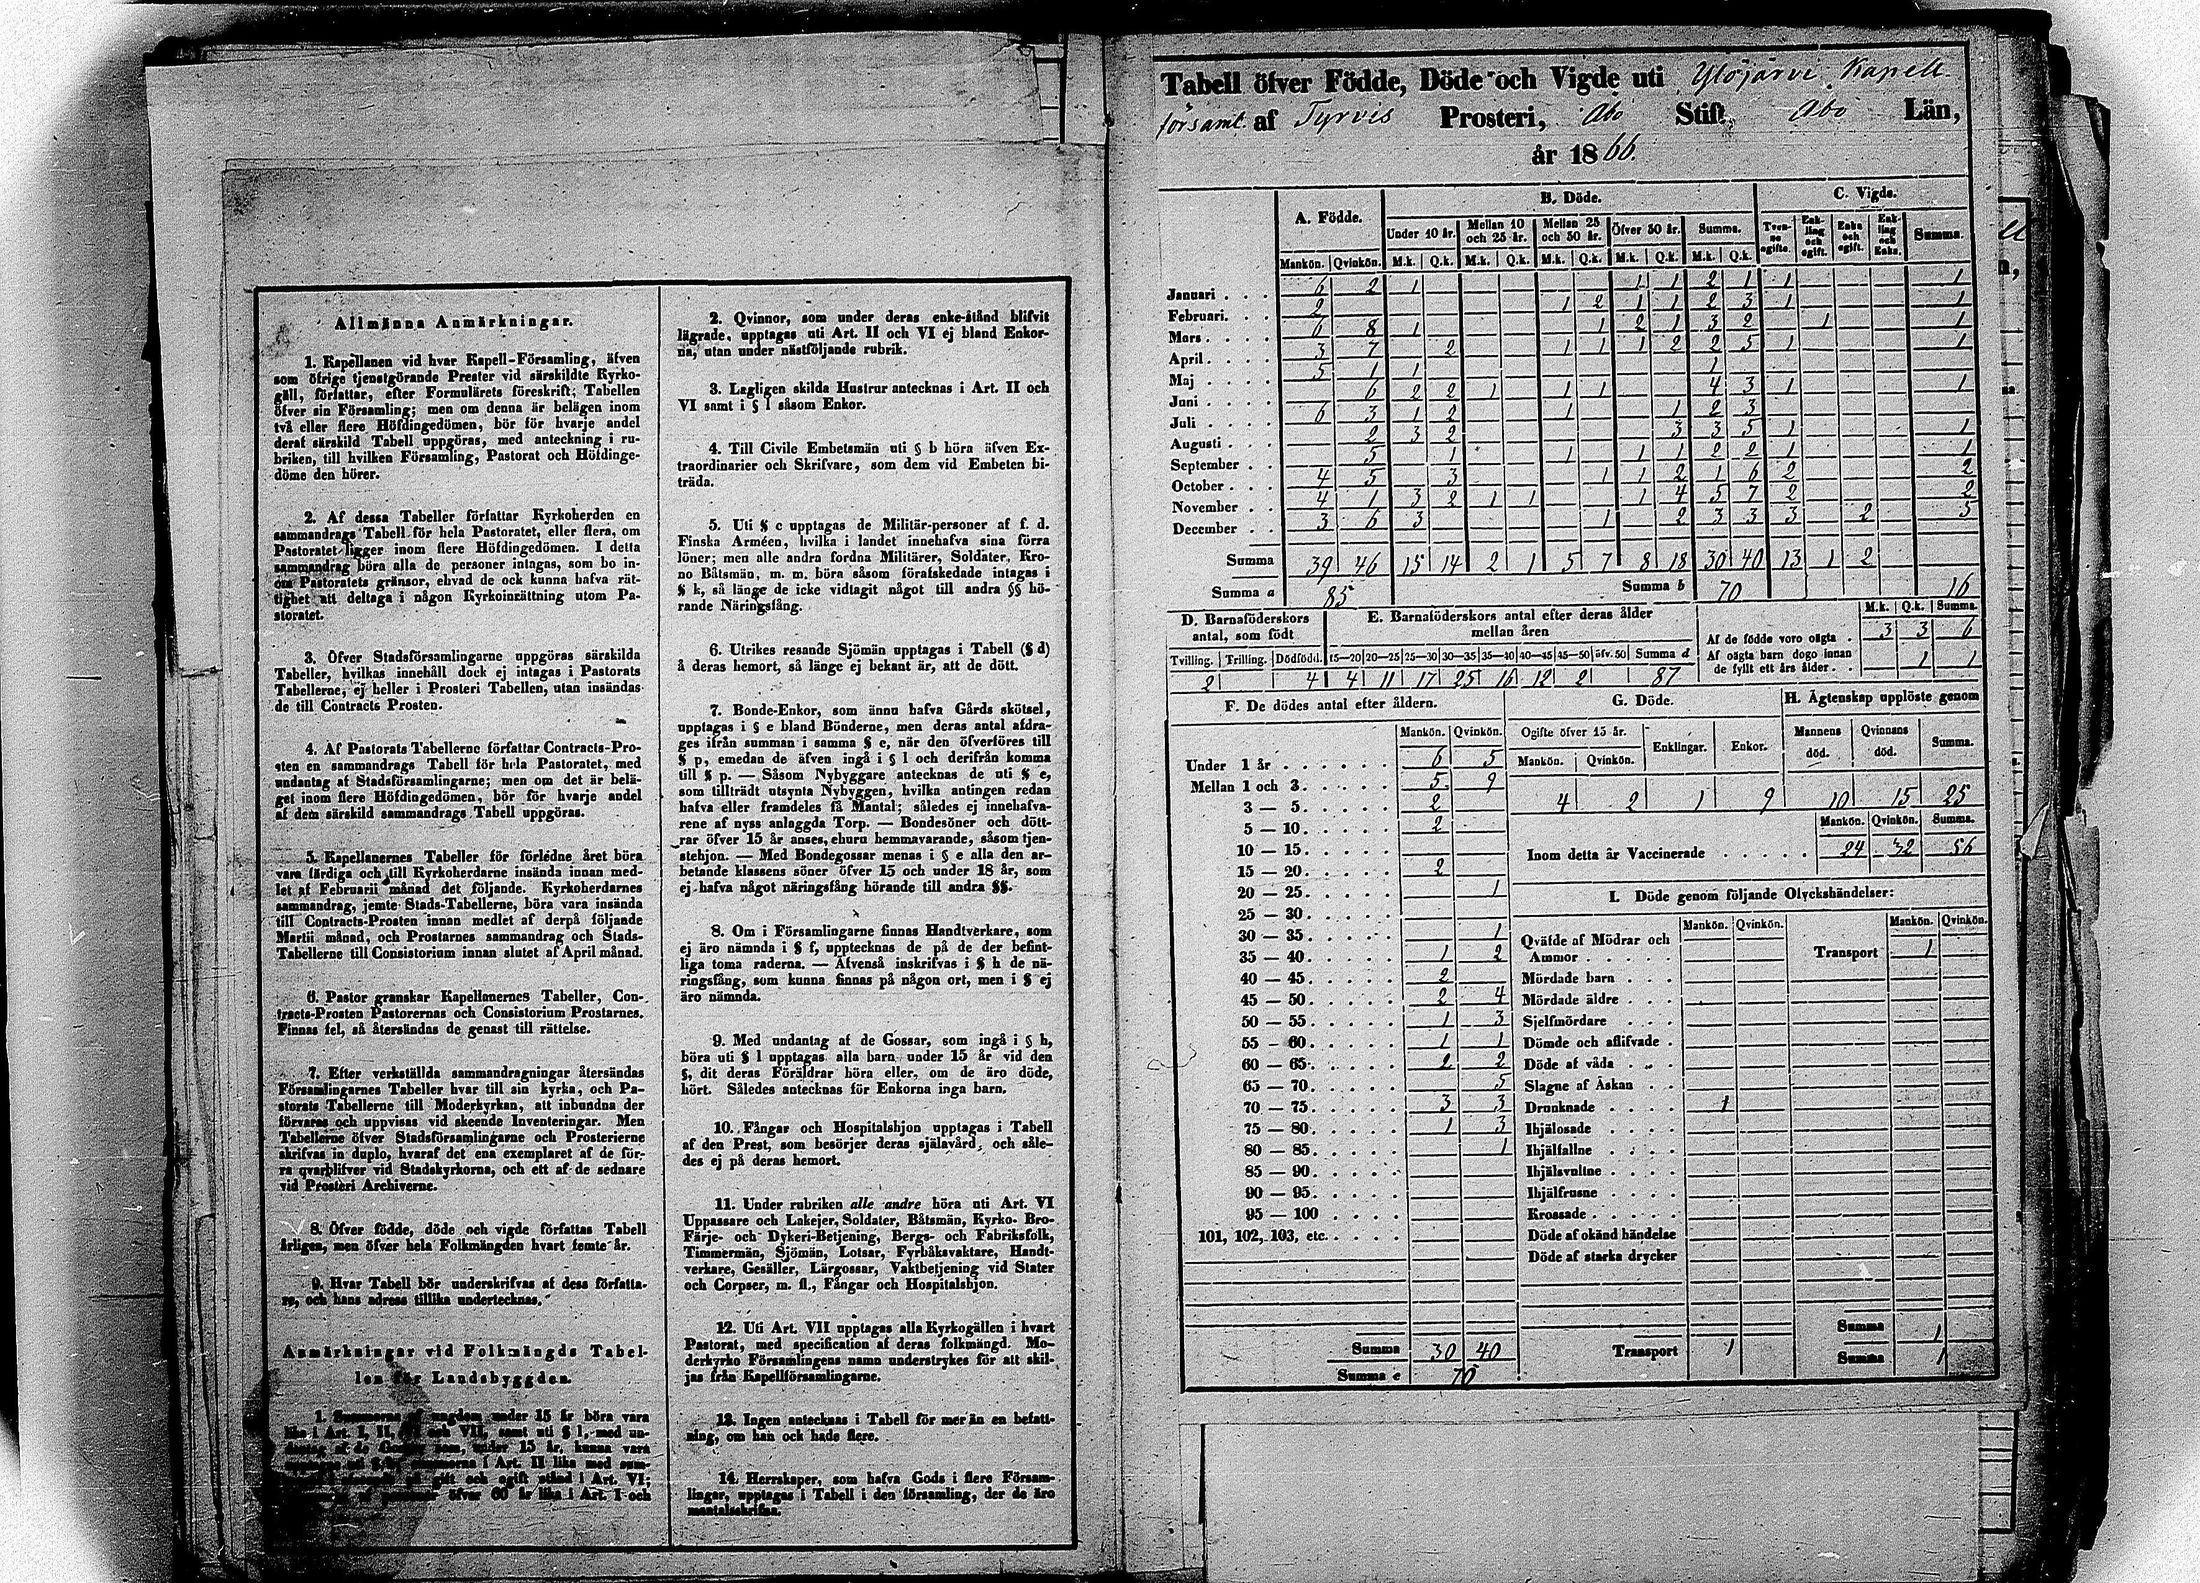 Allmänna Anmärkningar.
1. Kapellanen vid hvar Kapell-Församling, äfven
som öfrige tjenstgörande Prester vid särskildte Kyrko-
gäll, författar, efter Formulärets föreskrift, Tabellen
öfver sin Församling; men om denna är belägen inom
två eller flere Höfdingedömen, bör för hvarje andel
deraf särskild Tabell uppgöras, med anteckning i ru-
briken, till hvilken Församling, Pastorat och Höfdinge-
döme den hörer.
2. Af dessa Tabeller författar Kyrkoherden en
sammandrags Tabell för hela Pastoratet, eller flera, om
Pastoratet ligger inom flere Höfdingedömen. I detta
sammandrag böra alla de personer intagas, som bo in-
om Pastoratets gränsor, ehvad de ock kunna hafva rät-
tighet att deltaga i någon Kyrkoinrättning utom Pa-
storatet.
3. Öfver Stadsförsamlingarne uppgöras särskilda
Tabeller, hvilkas innehåll dock ej intages i Pastorats
Tabellerne, ej heller i Prosteri Tabellen, utan insändas
de till Contracts Prosten.
4. Af Pastorats Tabellerne författar Contracts-Pro-
sten en sammandrags Tabell för hela Pastoratet, med
undantag af Stadsförsamlingarne; men om det är belä-
get inom flere Höfdingedömen, bör för hvarje andel
af dem särskild sammandrags Tabell uppgöras.
5. Kapellanernes Tabeller för förledne året böra
vara färdiga och till Kyrkoherdarne insända innan med-
let af Februarii månad det följande. Kyrkoherdarnes
sammandrag, jemte Stads-Tabellerne, böra vara insända
till Contracts-Prosten innan medlet af derpå följande
Martii månad, och Prostarnes sammandrag och Stads-
Tabellerne till Consistorium innan slutet af April månad.
6. Pastor granskar Kapellanernes Tabeller, Con-
tracts-Prosten Pastorernas och Consistorium Prostarnes.
Finnas fel, så återsändas de genast till rättelse.
7. Efter verkställda sammandragningar återsändas
Församlingarnes Tabeller hvar till sin kyrka, och Pa-
storats Tabellerne till Moderkyrkan, att inbundna der
förvaras och uppvisas vid skeende Inventeringar. Men
Tabellerne öfver Stadsförsamlingarne och Prosterierne
skrifvas in duplo, hvaraf det ena exemplaret af de för-
ra qvarblifver vid Stadskyrkorna, och ett af de sednare
vid Prosteri Archiverne.
8. Öfver födde, döde och vigde författas Tabell
årligen, men öfver hela Folkmängden hvart femte år.
9. Hvar Tabell bör underskrifvas af dess författa-
re, och hans adress tillika undertecknas.
Anmärkningar vid Folkmängds Tabel-
len för Landsbyggden.
1. Summorna af ungdom under 15 år böra vara
lika i Art. I, II, VI och VII, samt uti § l, med un-
dantag af de Gossar som, under 15 år, kunna vara
Art. II lika med sum-
gift och ogift stånd i Art. VI;
öfver 60 år lika i Art. I och
2. Qvinnor, som under deras enke-stånd blifvit
lägrade, upptagas uti Art. II och VI ej bland Enkor-
na, utan under nästföljande rubrik.
3. Lagligen skilda Hustrur antecknas i Art. II och
VI samt i § l såsom Enkor.
4. Till Civile Embetsmän uti § b höra äfven Ex-
traordinarier och Skrifvare, som dem vid Embeten bi-
träda.
5. Uti § c upptagas de Militär-personer af f. d.
Finska Arméen, hvilka i landet innehafva sina förra
löner; men alle andra fordna Militärer, Soldater, Kro-
no Båtsmän, m. m. böra såsom förafskedade intagas i
§ k, så länge de icke vidtagit något till andra §§ hö-
rande Näringsfång.
6. Utrikes resande Sjömän upptagas i Tabell (§ d)
å deras hemort, så länge ej bekant är, att de dött.
7. Bonde-Enkor, som ännu hafva Gårds skötsel,
upptagas i § e bland Bönderne, men deras antal afdra-
ges ifrån summan i samma § e, när den öfverföres till
§ p, emedan de äfven ingå i § l och derifrån komma
till § p. — Såsom Nybyggare antecknas de uti § e,
som tillträdt utsynta Nybyggen, hvilka antingen redan
hafva eller framdeles få Mantal; således ej innehafva-
rene af nyss anlaggda Torp. — Bondesöner och dött-
rar öfver 15 år anses, ehuru hemmavarande, såsom tjen-
stehjon. — Med Bondegossar menas i § e alla den ar-
betande klassens söner öfver 15 och under 18 år, som
ej hafva något näringsfång hörande till andra §§.
8. Om i Församlingarne finnas Handtverkare, som
ej äro nämnda i § f, upptecknas de på de der befint-
liga toma raderna. — Äfvenså inskrifvas i § h de nä-
ringsfång, som kunna finnas på någon ort, men i § ej
äro nämnda.
9. Med undantag af de Gossar, som ingå i § h,
böra uti § l upptagas alla barn under 15 år vid den
§, dit deras Föräldrar höra eller, om de äro döde,
hört. Således antecknas för Enkorna inga barn.
10. Fångar och Hospitalshjon upptagas i Tabell
af den Prest, som besörjer deras själavård, och såle-
des ej på deras hemort.
11. Under rubriken alle andre höra uti Art. VI
Uppassare och Lakejer, Soldater, Båtsmän, Kyrko- Bro-
Färje- och Dykeri-Betjening, Bergs- och Fabriksfolk,
Timmermän, Sjömän, Lotsar, Fyrbåksvaktare, Handt-
verkare, Gesäller, Lärgossar, Vaktbetjening vid Stater
och Corpser, m. fl., Fångar och Hospitalshjon.
12. Uti Art. VII upptagas alla Kyrkogällen i hvart
Pastorat, med specification af deras folkmängd. Mo-
derkyrko Församlingens namn understrykes för att skil-
jas från Kapellförsamlingarne.
13. Ingen antecknas i Tabell för mer än en befatt-
ning, om han ock hade flere.
14. Herrskaper, som hafva Gods i flere Försam-
lingar, upptagas i Tabell i den församling, der de äro
mantalsskrifna.
Tabell öfver Födde, Döde och Vigde uti Ylöjärvi Kapell-
församl. af Tyrvis Prosteri, Åbo Stift, Åbo Län,
år 1866.
A. Födde. B. Döde. C. Vigde.
Under 10 år. Mellan 10 och 25 år. Mellan 25 och 50 år. Öfver 50 år. Summa. Tvenne ogifte. Enkling och ogift. Enka och ogift. Enkling och Enka. Summa.
Mankön. Qvinkön. M.k. Q.k. M.k. Q.k. M.k. Q.k. M.k. Q.k. M.k. Q.k.
Januari . . . 6 2 1 1 1 2 1 1 1
Februari. . . 2 1 2 1 1 2 3 1 1
Mars . . . . 6 8 1 1 2 1 3 2 1 1
April . . . . 3 7 2 1 1 1 2 2 5 1 1
Maj . . . . 5 1 1 1
Juni . . . . 6 2 2 1 1 1 4 3 1 1
Juli . . . . 6 3 1 2 1 1 2 3
Augusti . . . 2 3 2 3 3 5 1 1
September . . 5 1 1 1 1 2 2 1 1
October . . . 4 5 3 1 1 2 1 6 2 2
November . . 4 1 3 2 1 1 1 4 5 7 2 2
December . . 3 6 3 1 2 3 3 3 2 5
Summa 39 46 15 14 2 1 5 7 8 18 30 40 13 1 2
Summa a 85 Summa b 70 16
D. Barnaföderskors antal, som födt
Tvilling. Trilling. Dödfödd.
2 4
E. Barnaföderskors antal efter deras ålder mellan åren
15—20 20—25 25—30 30—35 35—40 40—45 45—50 öfv. 50 Summa d
4 11 17 25 16 12 2 87
M.k. Q.k. Summa.
Af de födde voro oägta . 3 3 6
Af oägta barn dogo innan
de fyllt ett års ålder . . 1 1
F. De dödes antal efter åldern.
Mankön. Qvinkön.
Under 1 år . . . . . . 6 5
Mellan 1 och 3. . . . . 5 9
3 — 5. . . . . 2
5 — 10. . . . . 2
10 — 15. . . . .
15 — 20. . . . . 2
20 — 25. . . . . 1
25 — 30. . . . .
30 — 35. . . . . 1
35 — 40. . . . . 1 2
40 — 45. . . . . 2
45 — 50. . . . . 2 4
50 — 55. . . . . 1 3
55 — 60. . . . . 1 1
60 — 65. . . . . 2 2
65 — 70. . . . . 5
70 — 75. . . . . 3 3
75 — 80. . . . . 1 3
80 — 85. . . . . 1
85 — 90. . . . .
90 — 95. . . . .
95 — 100 . . . .
101, 102, 103, etc. . . . .
Summa 30 40
Summa c 70
G. Döde.
Ogifte öfver 15 år. Enklingar. Enkor.
Mankön. Qvinkön.
4 2 1 9
H. Ägtenskap upplöste genom
Mannens död. Qvinnans död. Summa.
10 15 25
Mankön. Qvinkön. Summa.
Inom detta år Vaccinerade . . . . . 24 32 56
I. Döde genom följande Olyckshändelser:
Mankön. Qvinkön. Mankön. Qvinkön.
Qväfde af Mödrar och
Ammor . . . . . Transport 1
Mördade barn . . . .
Mördade äldre . . .
Sjelfmördare . . .
Dömde och aflifvade .
Döde af våda . . .
Slagne af Åskan . .
Drunknade . . . . 1
Ihjälosade . . . .
Ihjälfallne . . . .
Ihjälsvultne . . . .
Ihjälfrusne . . . .
Krossade . . . . .
Döde af okänd händelse
Döde af starka drycker
Summa 1
Transport 1 Summa 1